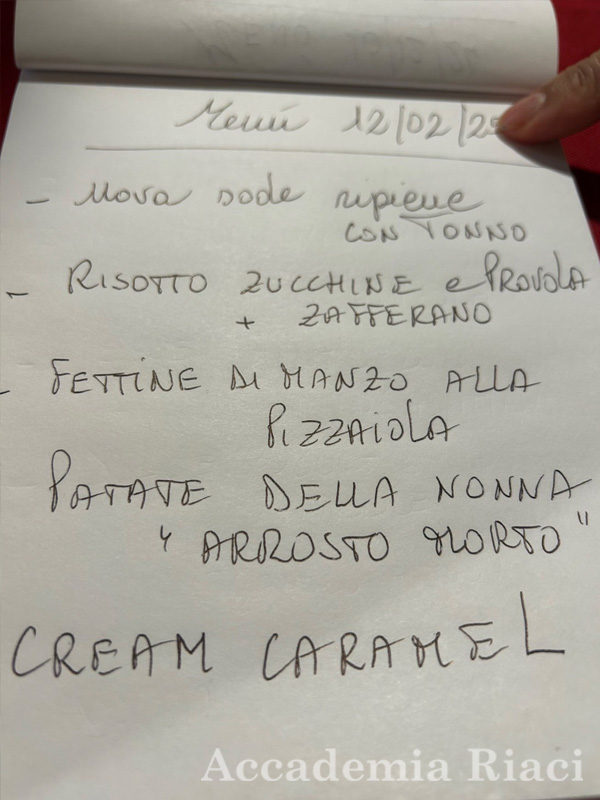 Menù 12/02/25
- Uova sode ripiene
CON TONNO
- RISOTTO ZUCCHINE e PROVOLA
+ ZAFFERANO
- FETTINE DI MANZO ALLA
PIZZAIOLA
PATATE DELLA NONNA
"ARROSTO MORTO"
CREAM CARAMEL
Accademia Riaci